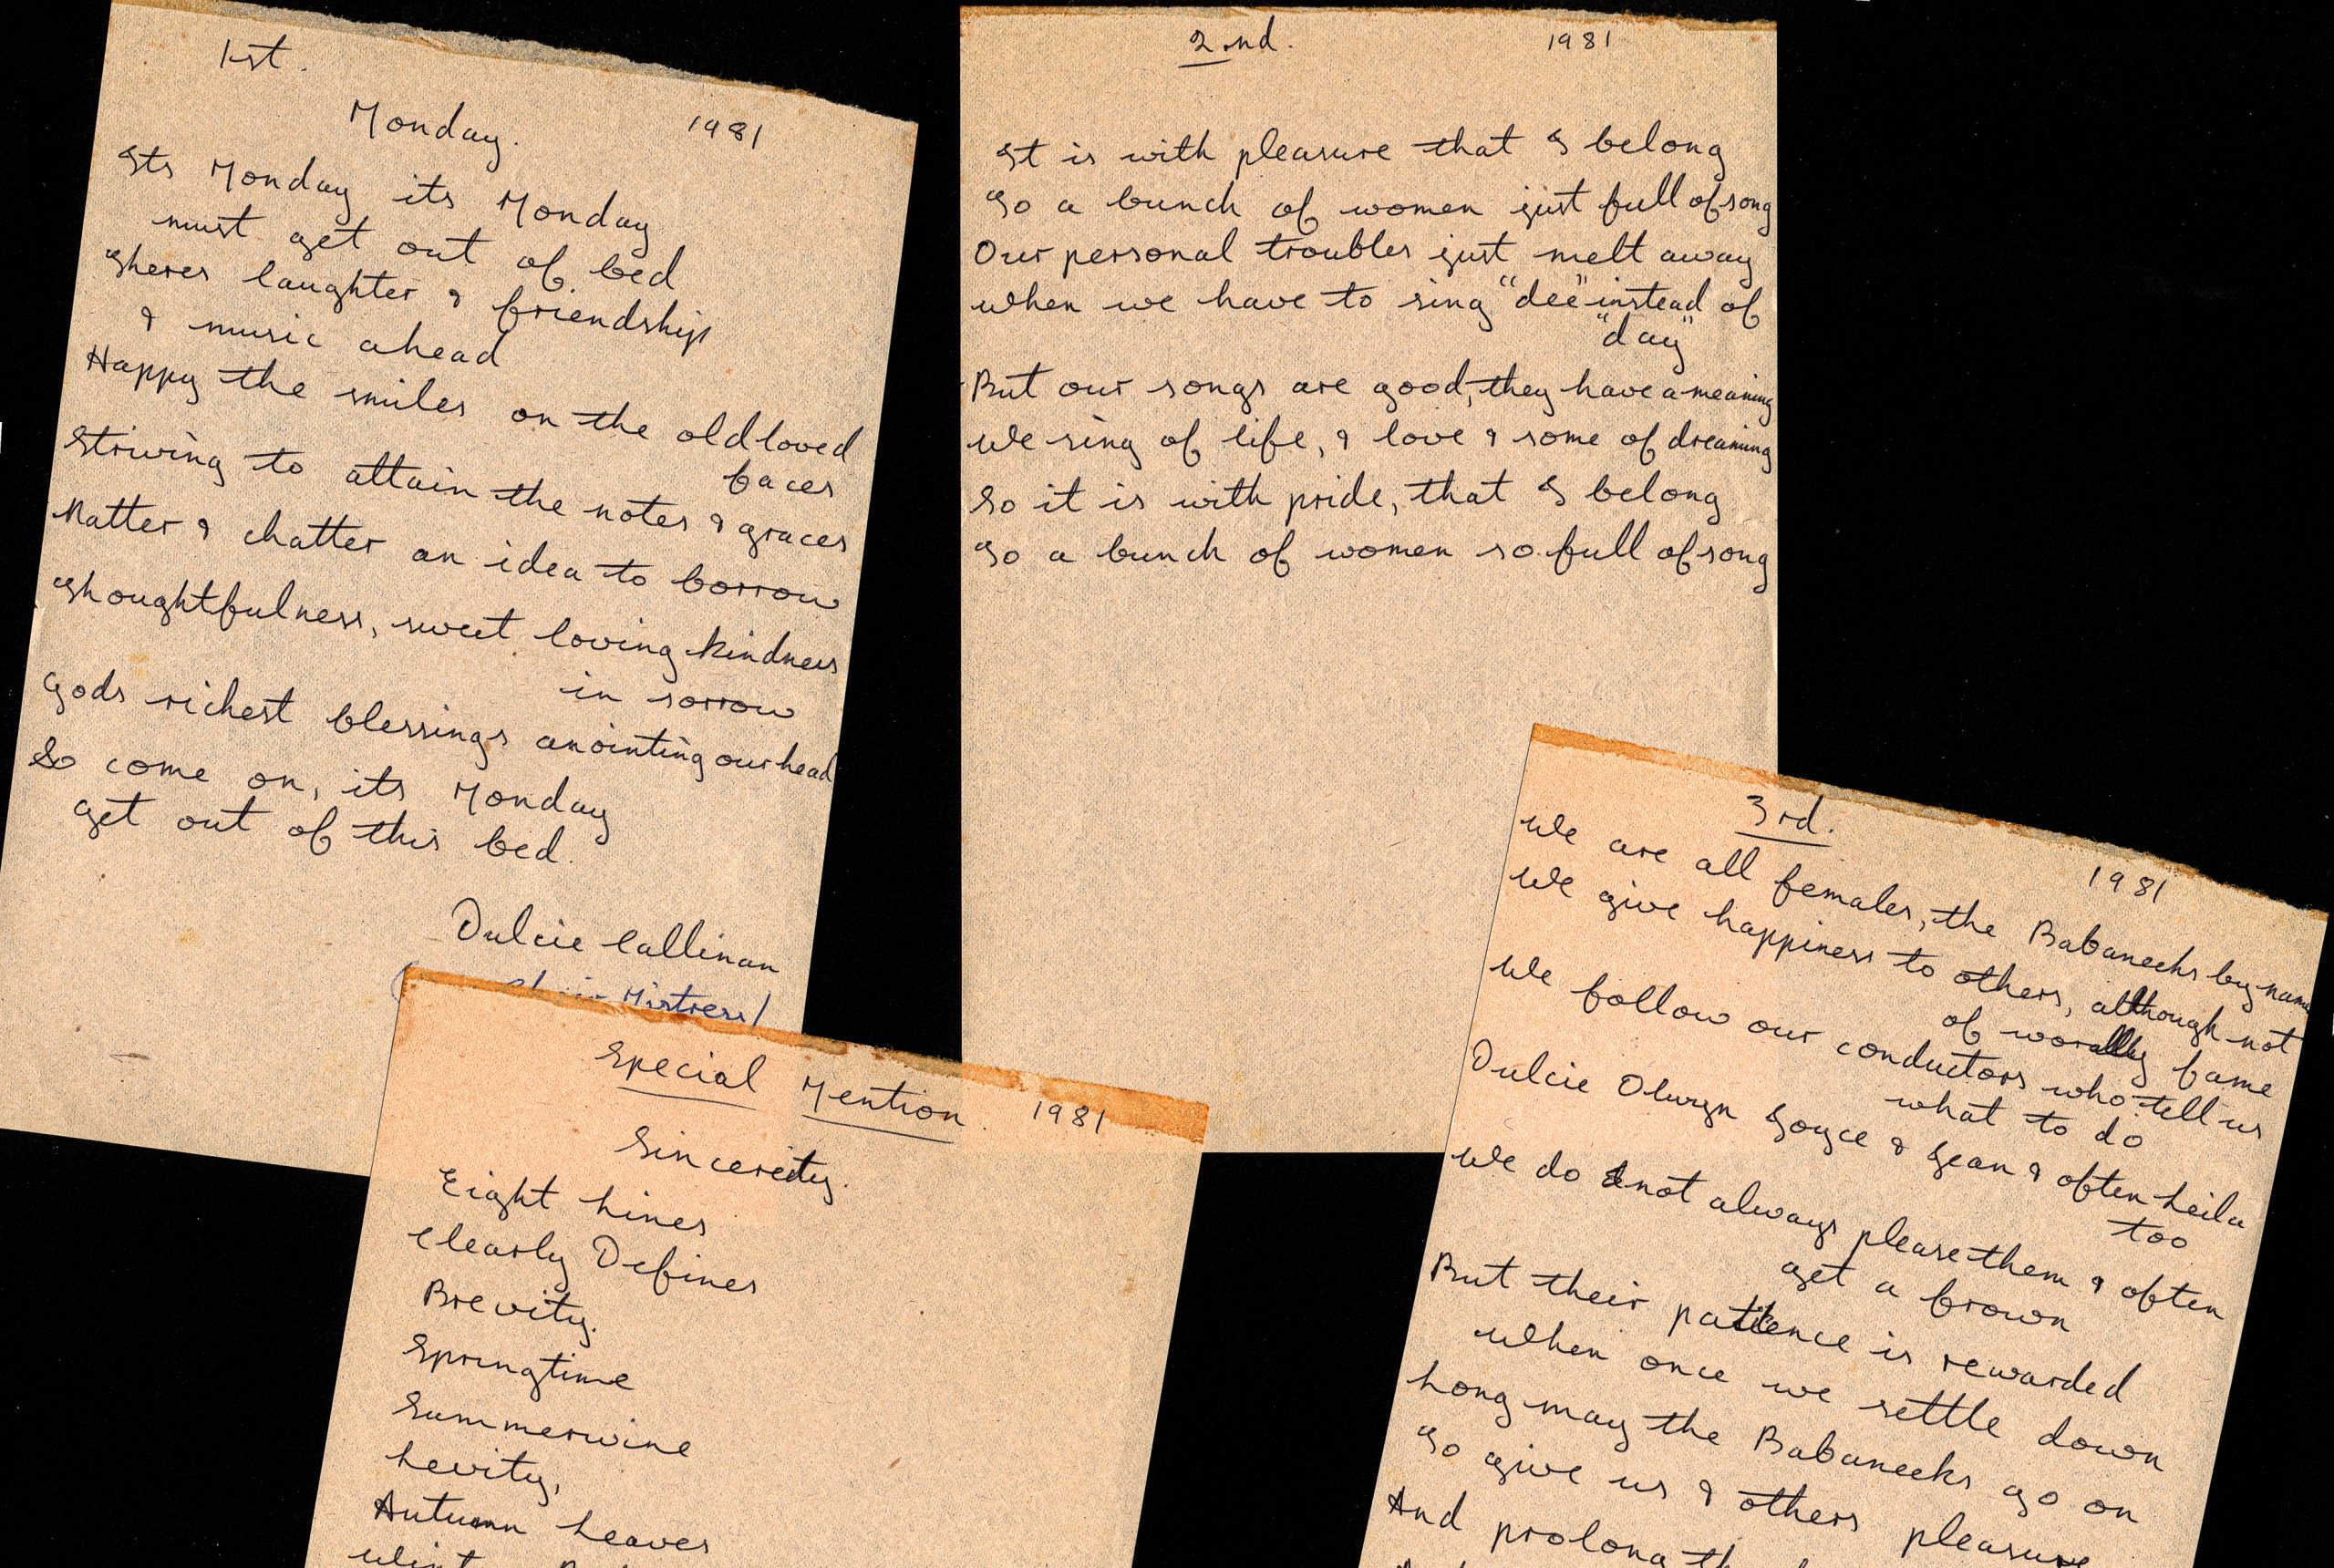 1st.
Monday. 1981
Its Monday its Monday
must get out of bed
Theres laughter & friendship
& music ahead
Happy the smiles on the old loved
faces
Striving to attain the notes & graces
Natter & chatter an idea to borrow
Thoughtfulness, sweet loving kindness
in sorrow
Gods richest blessings anointing our head
So come on, its Monday
get out of this bed.
Dulcie Callinan
Mistress)
2nd. 1981
It is with pleasure that I belong
To a bunch of women just full of song
Our personal troubles just melt away
When we have to sing "dee" instead of
"day"
But our songs are good, they have a meaning
We sing of life, & love & some of dreaming
So it is with pride, that I belong
To a bunch of women so full of song
3rd. 1981
We are all females, the Babaneeks by name
We give happiness to others, although not
of worldly fame
We follow our conductors who tell us
what to do
Dulcie Olwyn Joyce & Jean & often Leila
too
We do not always please them & often
get a frown
But their patience is rewarded
When once we settle down
Long may the Babaneeks go on
To give us & others pleasure
And prolong
Special Mention 1981
Sincerity.
Eight Lines
Clearly Defines
Brevity.
Springtime
Summerwine
Levity,
Autumn Leaves